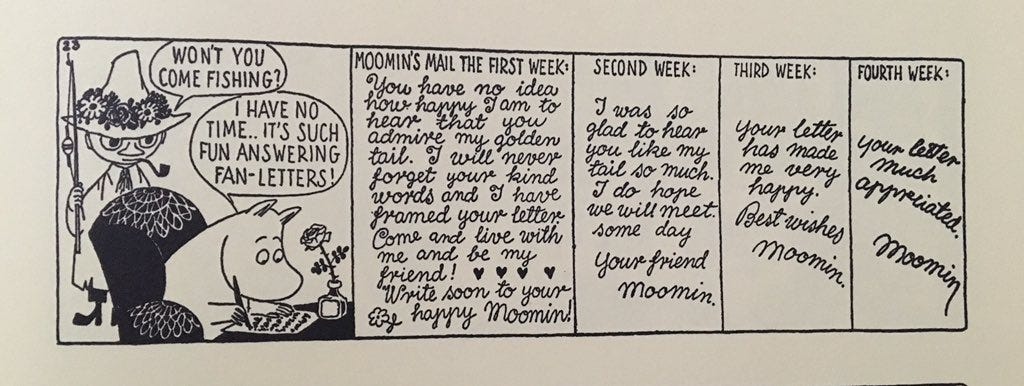 23
WON'T YOU
COME FISHING?
I HAVE NO
TIME.. IT'S SUCH
FUN ANSWERING
FAN-LETTERS!
MOOMIN'S MAIL THE FIRST WEEK:
You have no idea
how happy I am to
hear that you
admire my golden
tail. I will never
forget your kind
words and I have
framed your letter.
Come and live with
me and be my
friend! ♥ ♥ ♥ ♥
Write soon to your
happy Moomin!
SECOND WEEK:
I was so
glad to hear
you like my
tail so much.
I do hope
we will meet.
some day
Your friend
Moomin.
THIRD WEEK:
Your letter
has made
me very
happy.
Best wishes
Moomin.
FOURTH WEEK:
Your letter
much
appriciated.
Moomin